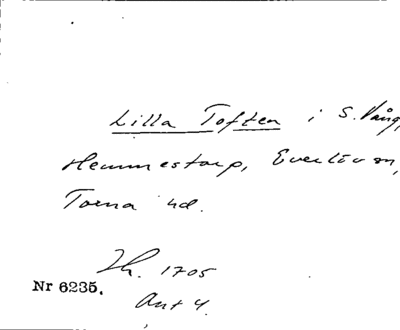 Lilla Toften i S. Vång,
Hemmestorp, Everlöv sn,
Torna hd.
Lh. 1705
Nr 6235.
Akt 4.